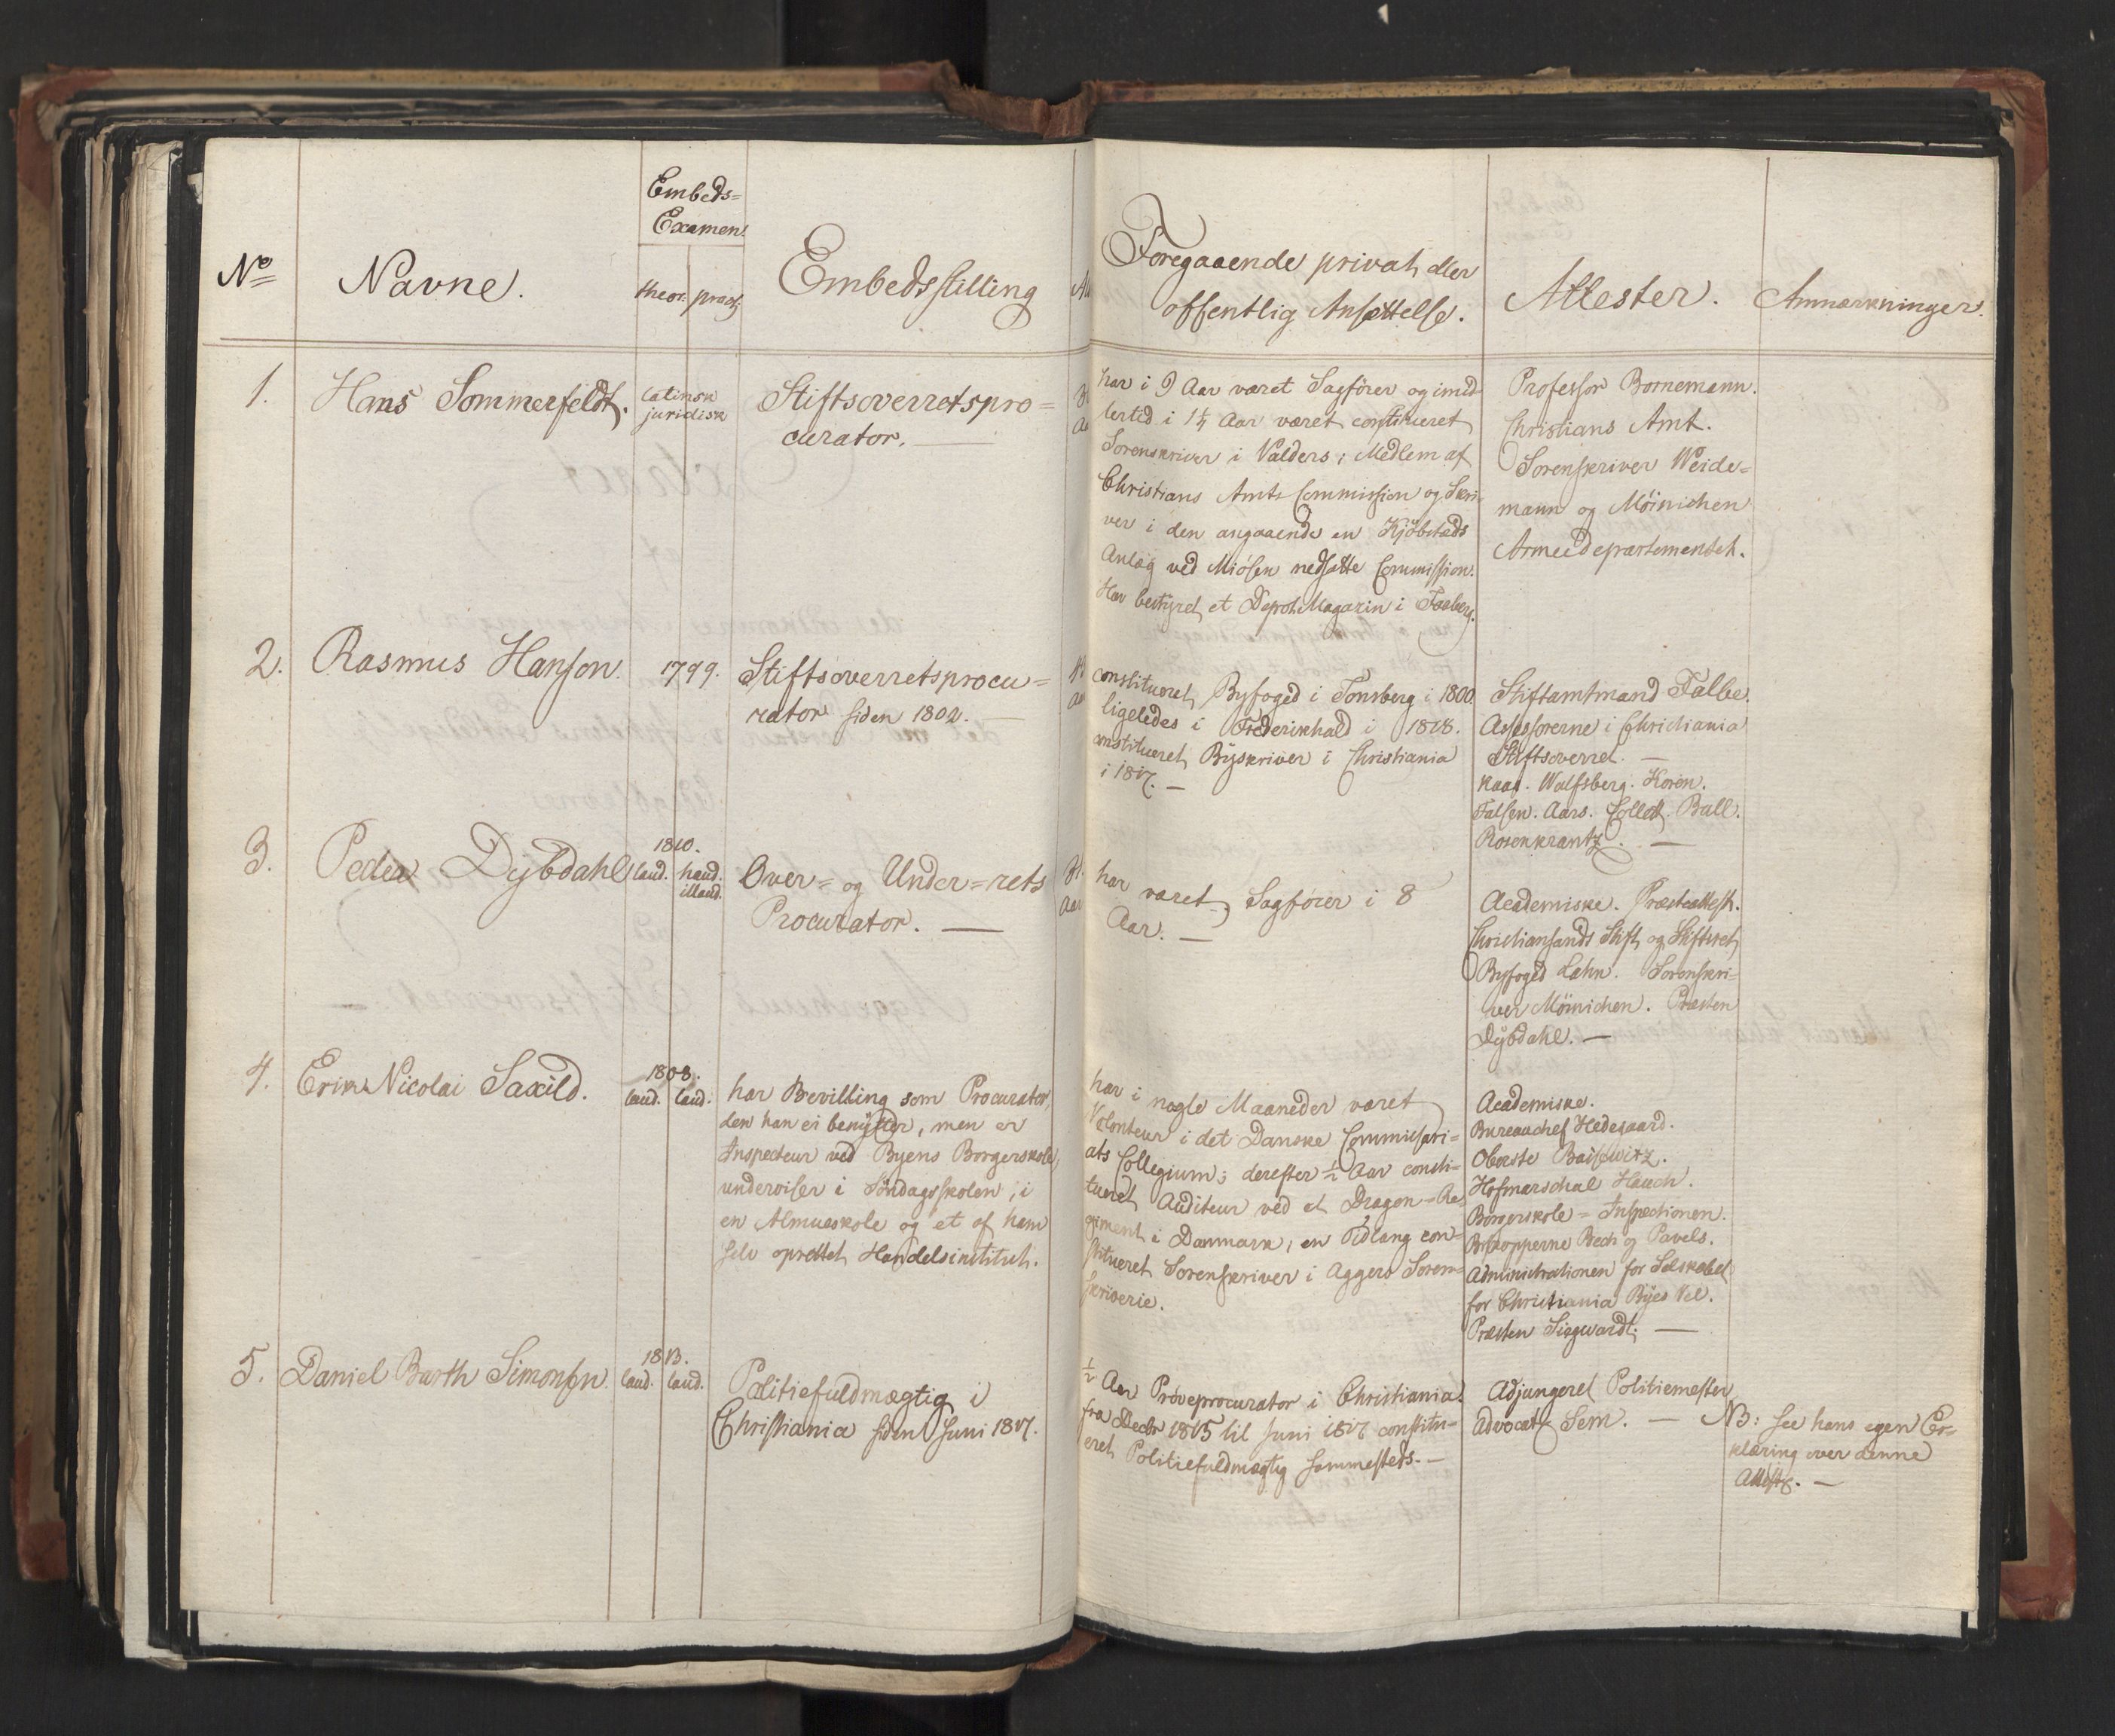 Embeds=
Examen.
No
Navne.
theor. pract.
Embedsstilling
1.
Hans Sommerfeldt.
latinsk
juridisk
Stiftsoverretspro=
curator. —
2.
Rasmus Hanson.
1799.
Stiftsoverretsprocu=
rator siden 1802. —
3.
Peder Dybdahl
1810.
laud. haud.
illaud.
Over= og Under=rets
Procurator. —
4.
Erik Nicolai Saxild.
1808.
laud. laud.
har Bevilling som Procurator,
den han ei benytter, men er
Inspecteur ved Byens Borgerskole,
underviser i Søndagsskolen, i
en Almueskole og et af ham
selv oprettet Handelsinstitut.
5.
Daniel Barth Simonsen.
1813.
laud. laud.
Politiefuldmægtig i
Christiania siden Juni 1817.
Foregaaende privat eller
offentlig Ansættelse.
Attester.
Anmærkninger.
har i 9 Aar været Sagfører og imid
lertid i 1¼ Aar været constitueret
Sorenskriver i Valders; Medlem af
Christians Amts Commission og Skri-
ver i den angaaende en Kjøbstæds
Anlæg ved Miøsen nedsatte Commission.
Har bestyret et Depot Magazin i Faaberg.
Professor Bornemann.
Christians Amt.
Sorenskriver Weide=
mann og Møinichen
Armeedepartementet.
constitueret Byfoged i Tønsberg i 1800
ligeledes i Frederikshald i 1818.
constitueret Byskriver i Christiania
i 1817. —
Stiftamtmand Falbe.
Assessorerne i Christiania
Stiftsoverret. —
Kaas. Wulfsberg. Koren.
Falsen. Aars. Collett. Ball.
Rosenkrantz. —
har været Sagfører i 8
Aar. —
Academiske. Præsteattest.
Christiansands Stift og Stiftsret
Byfoged Lahn. Sorenskri-
ver Møinichen. Præsten
Dybdahl. —
har i nogle Maaneder været
Volonteur i det Danske Commissari=
ats Collegium; derefter ½ Aar consti=
tueret Auditeur ved et Dragon=Re
giment i Danmark, en Tidlang con=
stitueret Sorenskriver i Aggers Soren=
skriverie.
Academiske.
Bureauchef Hedegaard.
Oberste
Hofmarschal Hauch.
Borgerskole=Inspectionen.
Biskopperne Bech og Pavels.
Administrationen for Selskabet
for Christiania Byes Vel.
Præsten Siegwardt. —
½ Aar Prøveprocurator i Christiania.
fra Decbr 1815 til Juni 1817 constitu=
eret Politiefuldmægtig sammesteds. —
Adjungeret Politiemester
Advocat Sem. —
NB: see hans egen Er=
klæring over denne
Attest. —